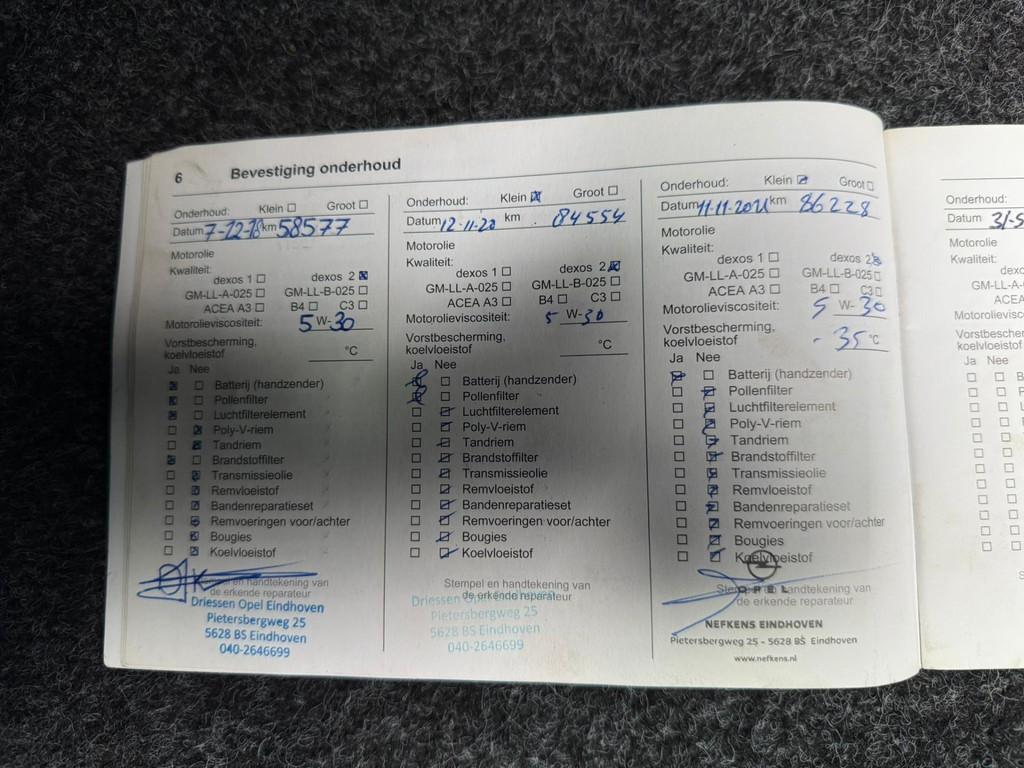 6 Bevestiging onderhoud
Onderhoud: Klein Groot
Datum 7-12-18 km 58577
Motorolie
Kwaliteit:
dexos 1 dexos 2
GM-LL-A-025 GM-LL-B-025
ACEA A3 B4 C3
Motorolieviscositeit: 5 W-30
Vorstbescherming,
koelvloeistof °C
Ja Nee
Batterij (handzender)
Pollenfilter
Luchtfilterelement
Poly-V-riem
Tandriem
Brandstoffilter
Transmissieolie
Remvloeistof
Bandenreparatieset
Remvoeringen voor/achter
Bougies
Koelvloeistof
en handtekening van
de erkende reparateur
Driessen Opel Eindhoven
Pietersbergweg 25
5628 BS Eindhoven
040-2646699
Onderhoud: Klein Groot
Datum 12-11-20 km 84554
Motorolie
Kwaliteit:
dexos 1 dexos 2
GM-LL-A-025 GM-LL-B-025
ACEA A3 B4 C3
Motorolieviscositeit: 5 W-30
Vorstbescherming,
koelvloeistof °C
Ja Nee
Batterij (handzender)
Pollenfilter
Luchtfilterelement
Poly-V-riem
Tandriem
Brandstoffilter
Transmissieolie
Remvloeistof
Bandenreparatieset
Remvoeringen voor/achter
Bougies
Koelvloeistof
Stempel en handtekening van
de erkende reparateur
Driessen Opel Eindhoven
Pietersbergweg 25
5628 BS Eindhoven
040-2646699
Onderhoud: Klein Groot
Datum 11-11-2021 km 86228
Motorolie
Kwaliteit:
dexos 1 dexos 2
GM-LL-A-025 GM-LL-B-025
ACEA A3 B4 C3
Motorolieviscositeit: 5 W-30
Vorstbescherming,
koelvloeistof -35 °C
Ja Nee
Batterij (handzender)
Pollenfilter
Luchtfilterelement
Poly-V-riem
Tandriem
Brandstoffilter
Transmissieolie
Remvloeistof
Bandenreparatieset
Remvoeringen voor/achter
Bougies
Koelvloeistof
Stempel en handtekening van
de erkende reparateur
OPEL
NEFKENS EINDHOVEN
Pietersbergweg 25 - 5628 BS Eindhoven
www.nefkens.nl
Onderhoud:
Datum 31-5
Motorolie
Kwaliteit:
dexos
GM-LL-A-
ACEA
Motorolievisco
Vorstbescher
koelvloeistof
Ja Nee
B
P